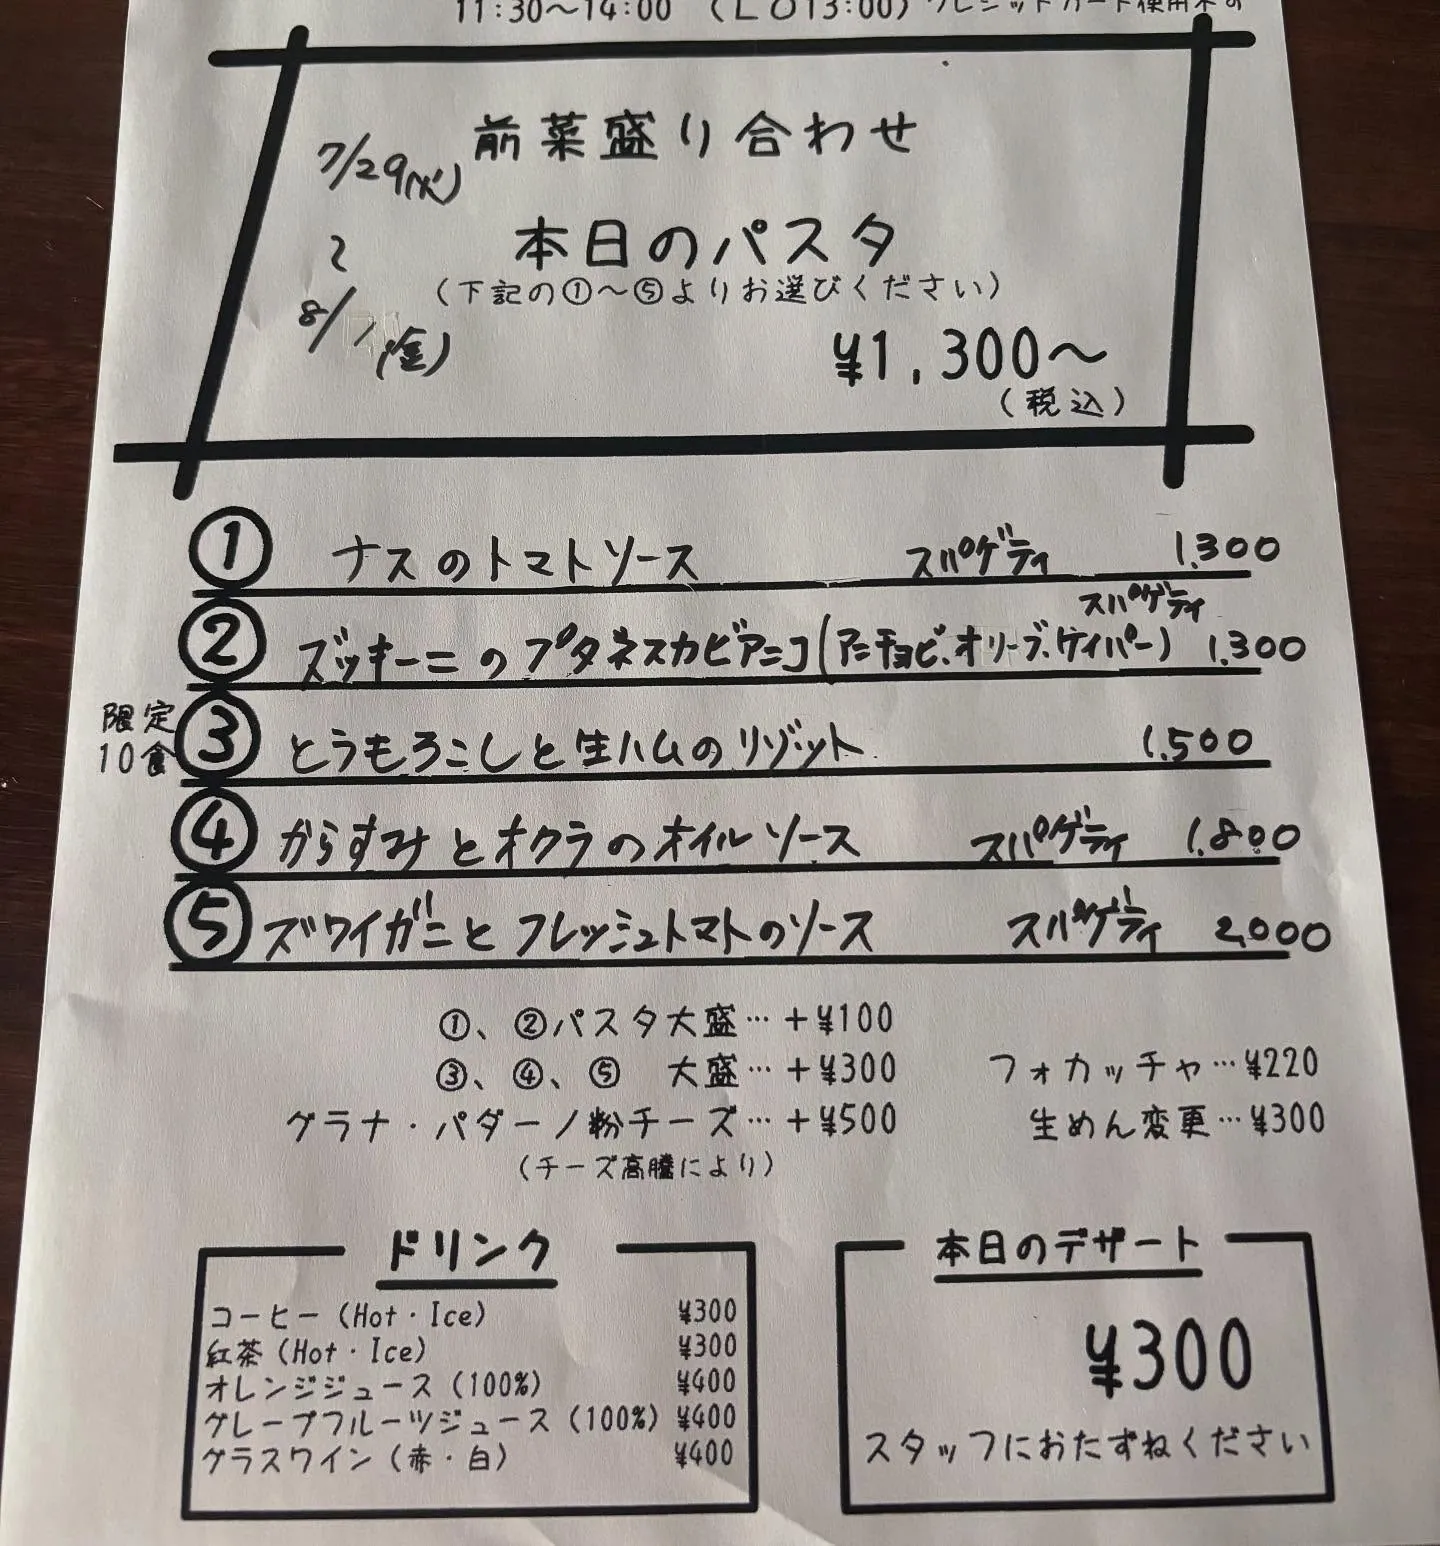 11:30～14:00 （LO13:00）クレジットカード使用不可
前菜盛り合わせ
7/29(火)
〜
8/1(金)
本日のパスタ
（下記の①～⑤よりお選びください）
¥1,300～
（税込）
① ナスのトマトソース スパゲティ 1,300
② ズッキーニのプタネスカビアニコ(アンチョビ、オリーブ、ケイパー) スパゲティ 1,300
限定10食 ③ とうもろこしと生ハムのリゾット 1,500
④ からすみとオクラのオイルソース スパゲティ 1,800
⑤ ズワイガニとフレッシュトマトのソース スパゲティ 2,000
①、②パスタ大盛…＋¥100
③、④、⑤ 大盛…＋¥300
グラナ・パダーノ粉チーズ…＋¥500
（チーズ高騰により）
フォカッチャ…¥220
生めん変更…¥300
ドリンク
コーヒー（Hot・Ice） ¥300
紅茶（Hot・Ice） ¥300
オレンジジュース（100%） ¥400
グレープフルーツジュース（100%） ¥400
グラスワイン（赤・白） ¥400
本日のデザート
¥300
スタッフにおたずねください